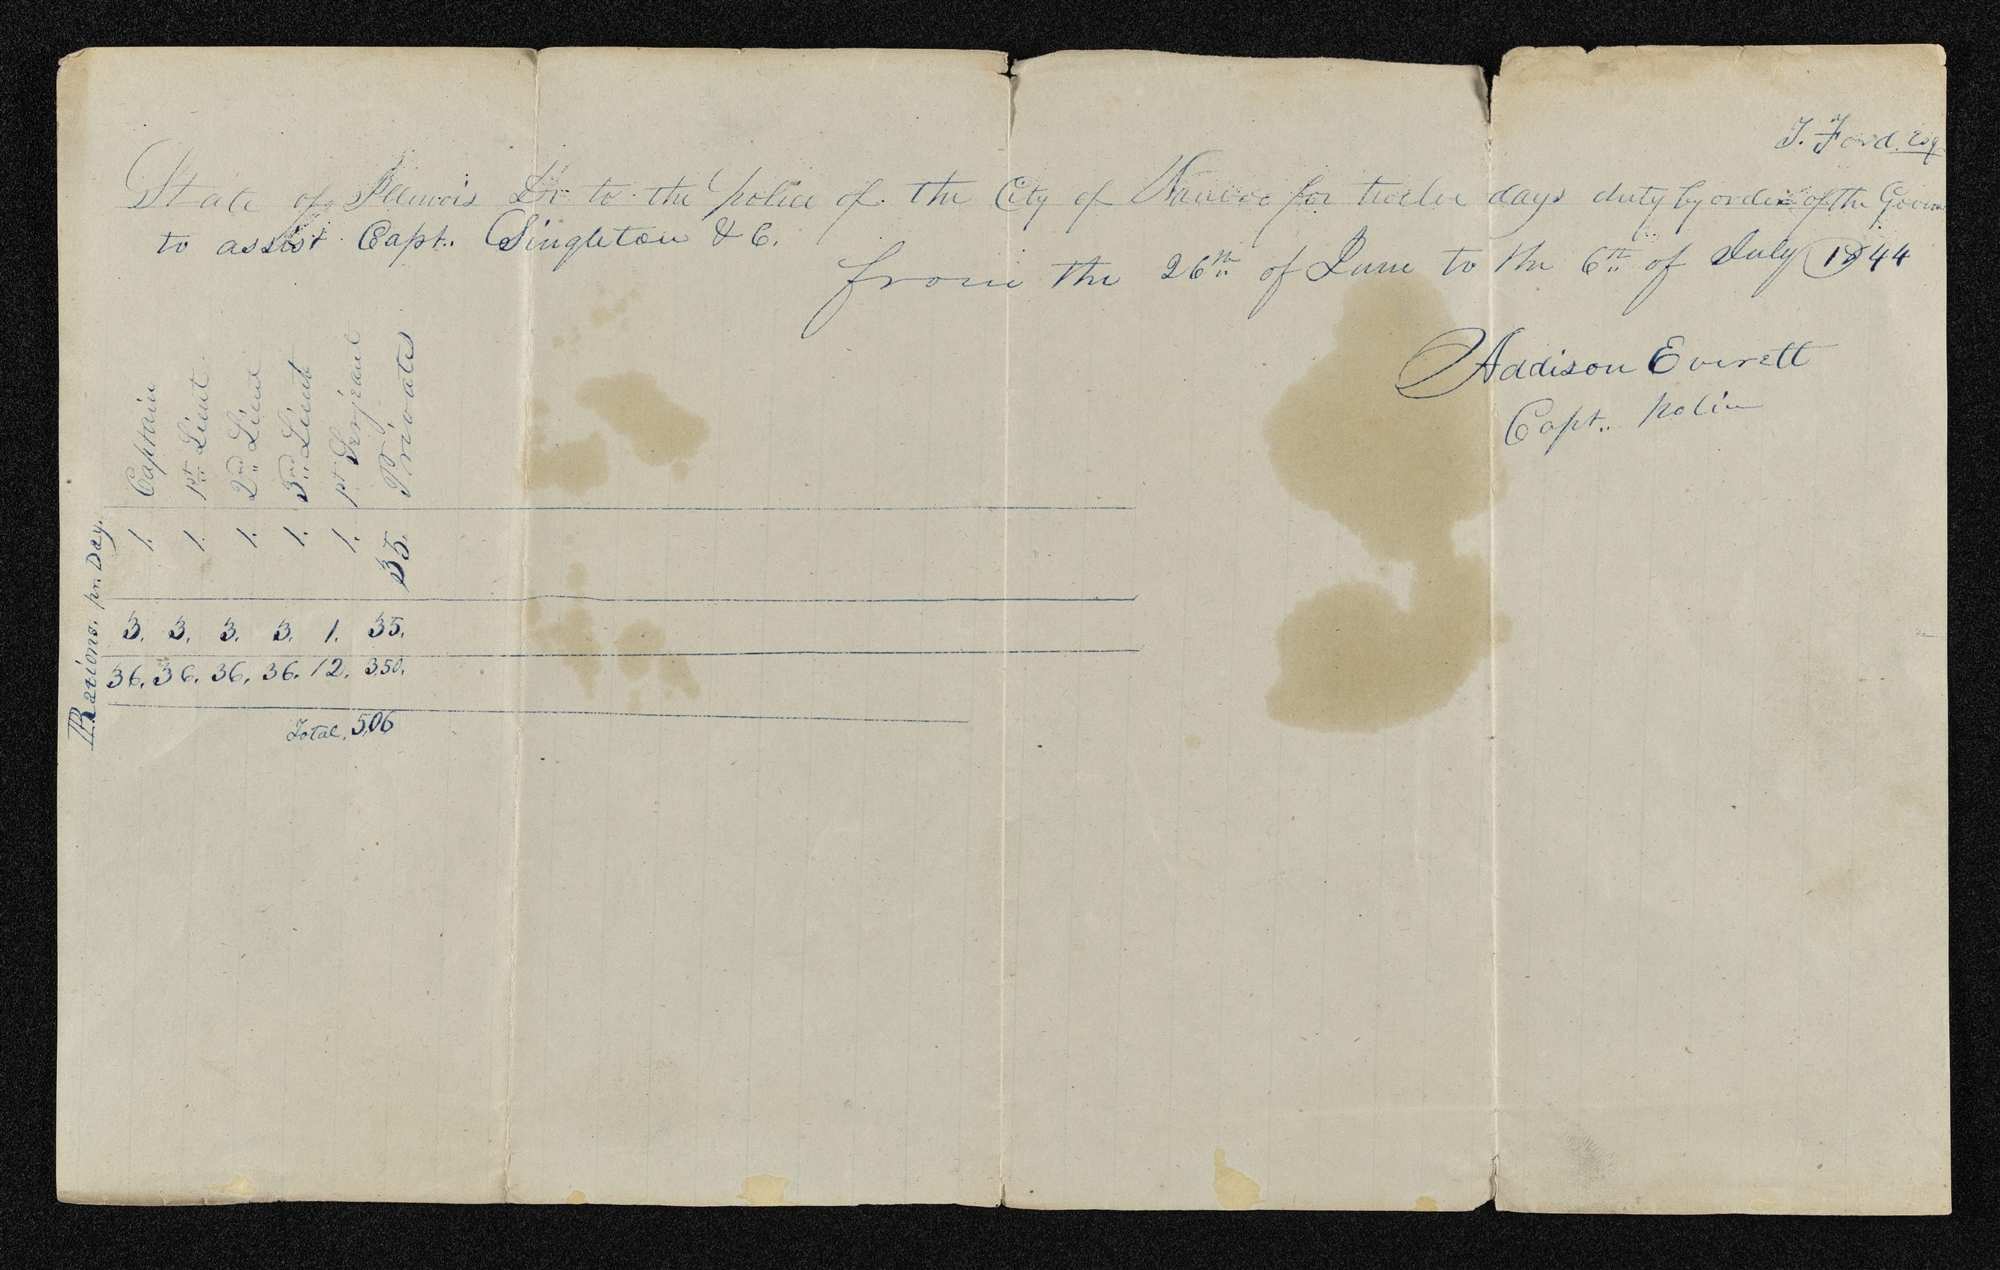 T. Ford. Esq
State of Illinois Dr to the police of the City of Nauvoo for twelve days duty by order of the Govern
to assist Capt. Singleton & C.
from the 26th of June to the 6th of July 1844
Addison Everett
Capt. police
Captain
1st Lieut
2nd Lieut
3rd Lieut
1st Serjeant
Privates
1. 1. 1. 1. 1. 35.
Rations. pr. Day.
3. 3. 3. 3. 1. 35.
36. 36. 36. 36. 12. 350.
Total. 506